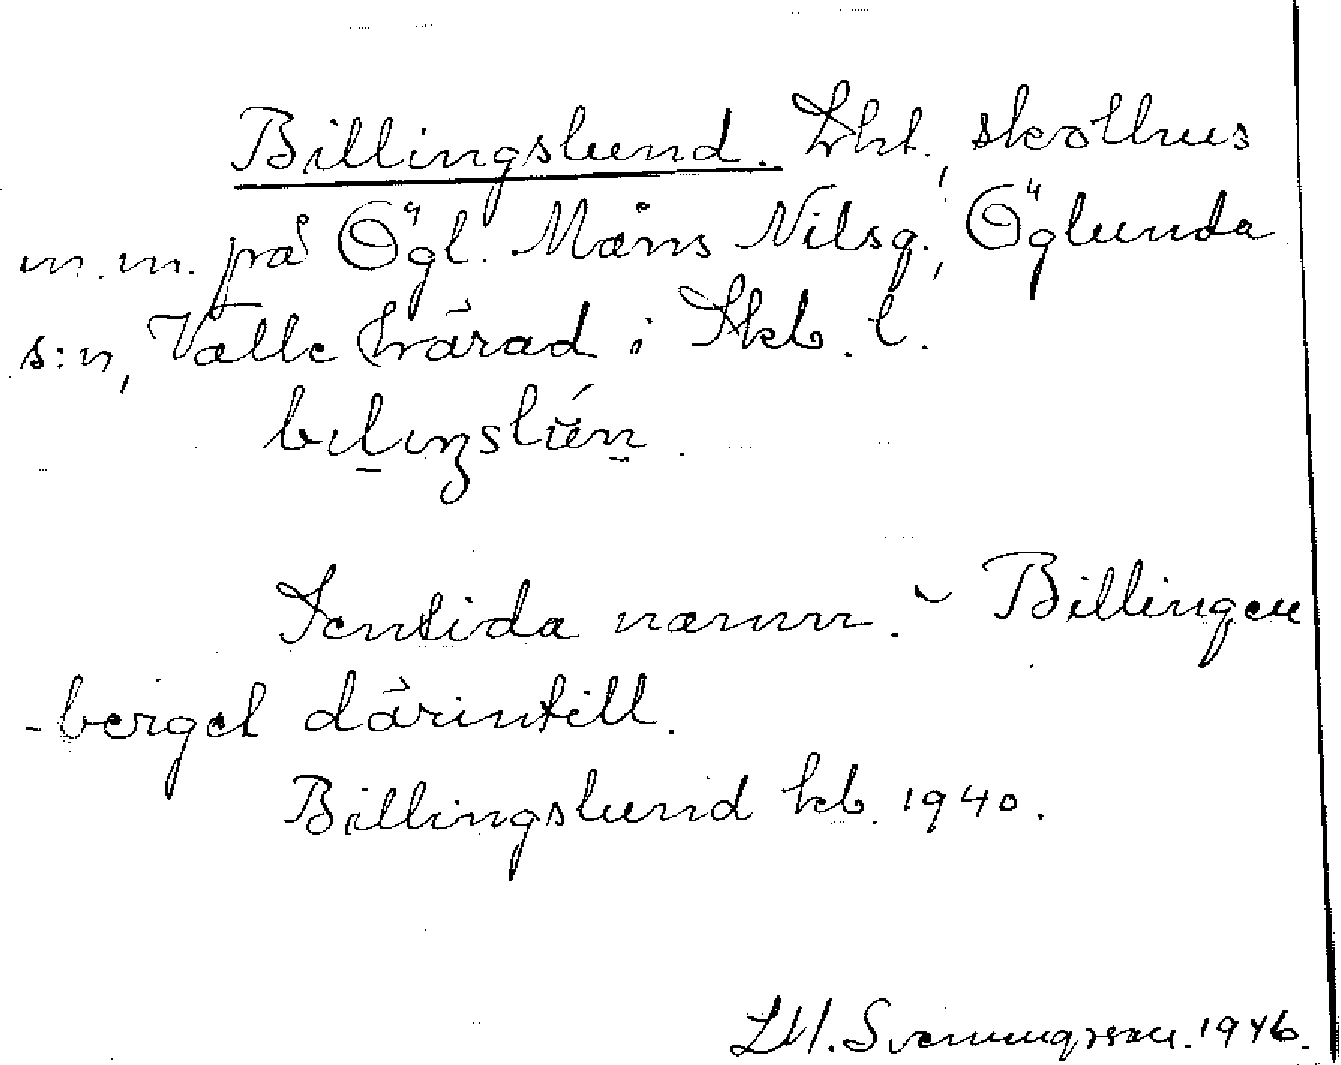 Billingslund. Lht., skolhus
m.m. på Ögl. Måns Nilsg., Öglunda
s:n, Valle härad i Skb. l.
bılıŋslún.
Sentida namn. - Billingen
-berget därintill.
Billingslund kb. 1940.
LM. Svenungsson. 1946.